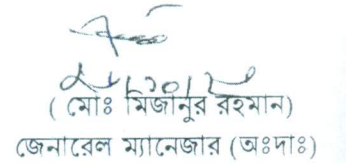 ( মোঃ মিজানুর রহমান)
জেনারেল ম্যানেজার (অঃদাঃ)